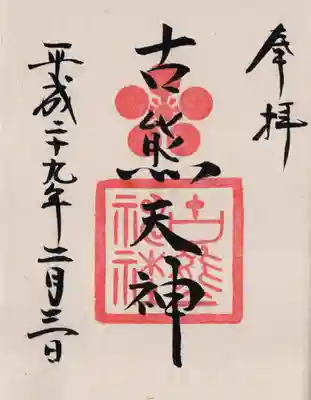 奉拝
古熊天神
古熊神社
平成二十九年二月三日